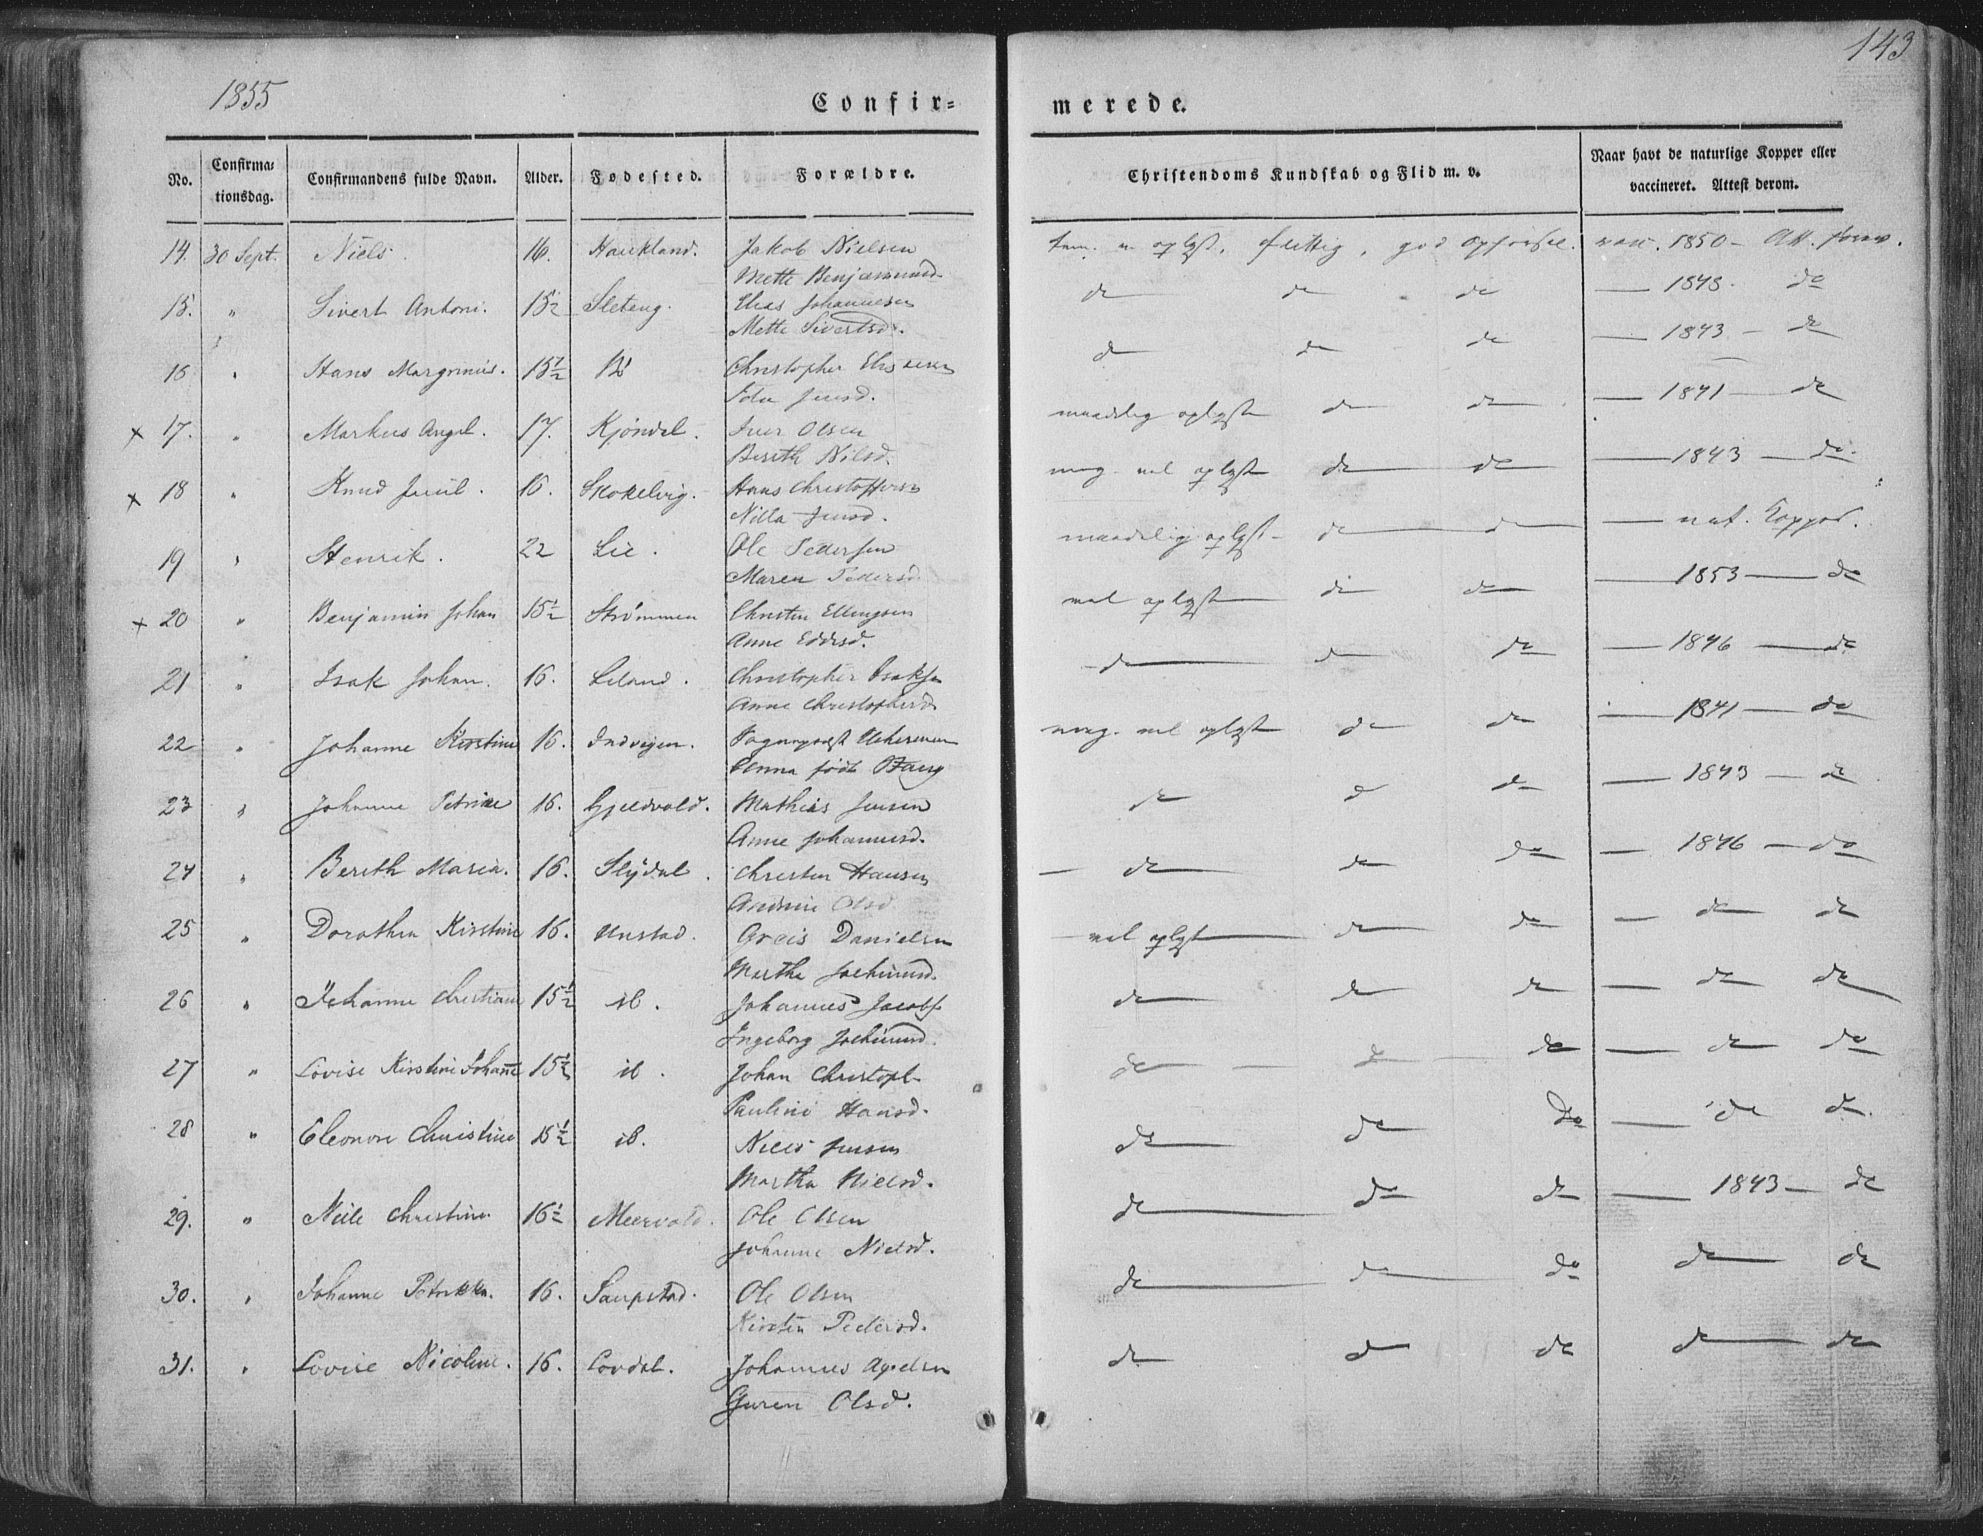 1855
143
Confir=
merede.
No.
Confirma=
tionsdag.
Confirmandens fulde Navn.
Alder.
Fødested.
Forældre.
Christendoms Kundskab og Flid m. v.
Naar havt de naturlige Kopper eller
vaccineret. Attest derom.
14. 30 Sept. Niels. 16. Haukland. Jakob Nielsen oplyst, flittig, god Opførsel. vacc. 1850 - Att.
Mette Benjaminsd.
15. " Sivert Antoni. 15½ Sleteng. Elias Johannesen do do do — 1848. do
Mette Sivertsd.
16 " Hans Margrinius. 15½ Bö Christopher do do do — 1843 - do
Jensd.
x 17. " Markus Angel. 17. Kjöndal. Iver Olsen maadelig oplyst do do — 1841 — do
Bereth Nilsd.
x 18 " Knud Juul. 16. Skokelvig. Hans Christoffersen nog. vel oplyst do do — 1843 — do.
Nilla Jensd.
19 " Henrik. 22 Lie. Ole Pedersen maadelig oplyst - do do — nat. Kopper.
Maren Pedersd.
x 20 " Benjamin Johan 15½ Strömmen Christen Ellingsen vel oplyst do do — 1853 — do
Anne Edisd.
21 " Isak Johan. 16. Leland. Christopher Isaksen do do do — 1846 — do
Anne Christophersd.
22 " Johanne Kirstine 16. Indveyen. Sogneprest Ucherman nog. vel oplyst do do — 1841 — do
Anna född
23 " Johanne Petrine 16. Gjeldvold. Mathias Jensen do do do — 1843 — do
Anne Johannesd.
24 " Bereth Maria. 16. Slydal. Christen Hansen do do do — 1846 — do
Olsd
25 " Dorothea Kirstine 16. Unstad. Greis Danielsen vel oplyst do do — do do
Martha Jochimsd.
26 " Johanne Christiane 15½ ib. Johannes Jacobs. do do do — do do
Ingeborg Jochimsd.
27 " Lovise Kirstine Johanne 15½ ib. Johan Christoph. do do do — do do
Pauline Hansd.
28 " Eleonore Christine 15½ ib. Niels Jensen do do do — do do.
Martha Nielsd.
29. " Neile Christine 16½ Meervold. Ole Olsen do do do — 1843 — do
Johanne Nielsd.
30. " Johanne Petrikka. 16. Saupstad. Ole Olsen do do do do do
Kirsten Pedersd.
31. " Lovise Nicoline. 16. Lovdal. Johannes Axelsen do do do do do
Guren Olsd.